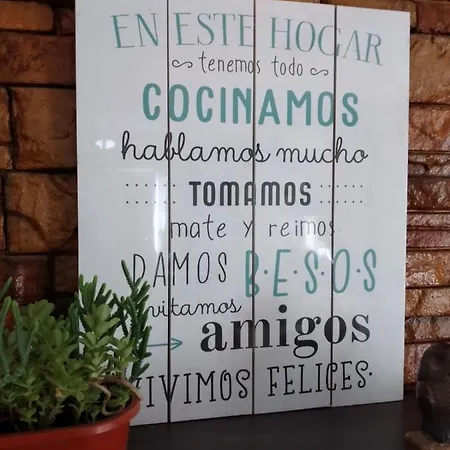 EN ESTE HOGAR
tenemos todo
COCINAMOS
hablamos mucho
TOMAMOS
mate y reimos
DAMOS B·E·S·O·S
vitamos
amigos
VIVIMOS FELICES.